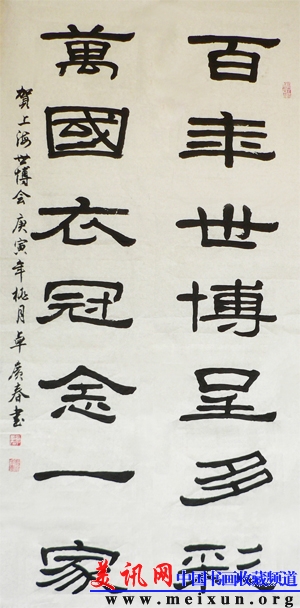 百年世博呈多彩
萬國衣冠念一家
賀上海世博会庚寅年桃月卓广春书
美讯网
中国书画收藏频道
www.meixun.org